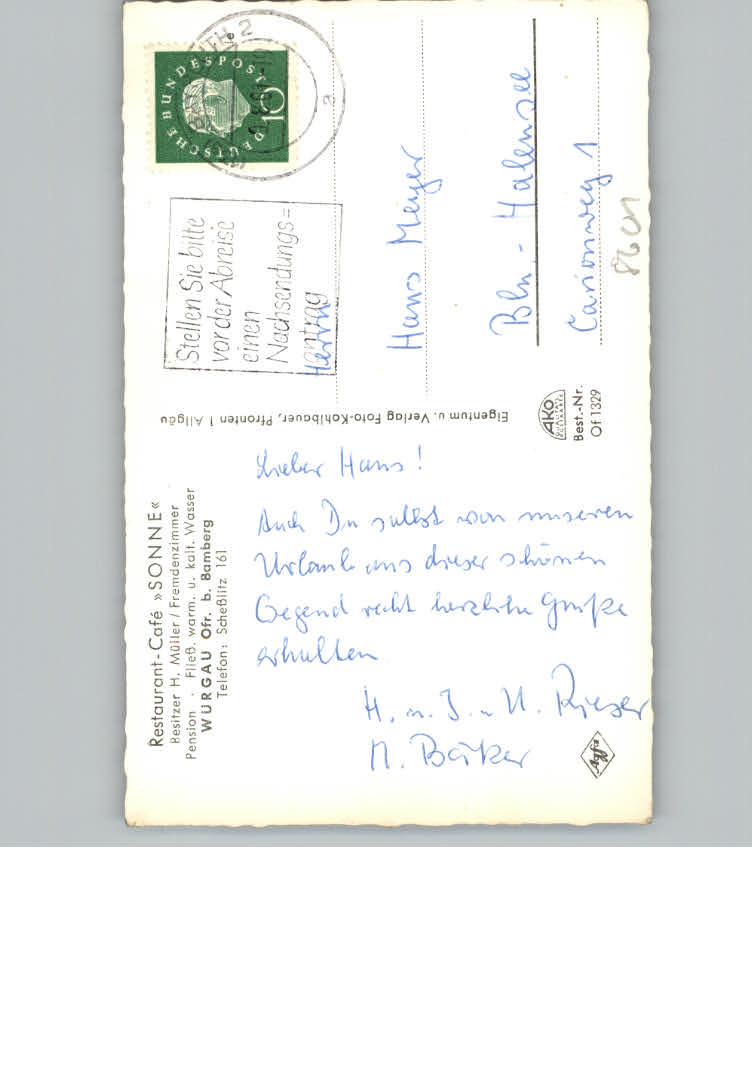 Restaurant-Café »SONNE«
Besitzer H. Müller / Fremdenzimmer
Pension · Fließ. warm. u. kalt. Wasser
WÜRGAU Ofr. b. Bamberg
Telefon: Scheßlitz 161
Lieber Hans!
Auch Du sollst von unseren
Urlaub aus dieser schönen
Gegend recht herzliche Grüße
erhalten
H. u. J. u U. Rieser
M. Bäker
Agfa
Eigentum u. Verlag Foto-Kohlbauer, Pfronten i Allgäu
AKO
Best.-Nr.
Of 1329
DEUTSCHE BUNDESPOST
10
2
a
Stellen Sie bitte
vor der Abreise
einen
Nachsendungs=
antrag
Herrn
Hans Meyer
Bln.-Halensee
Carionweg 1